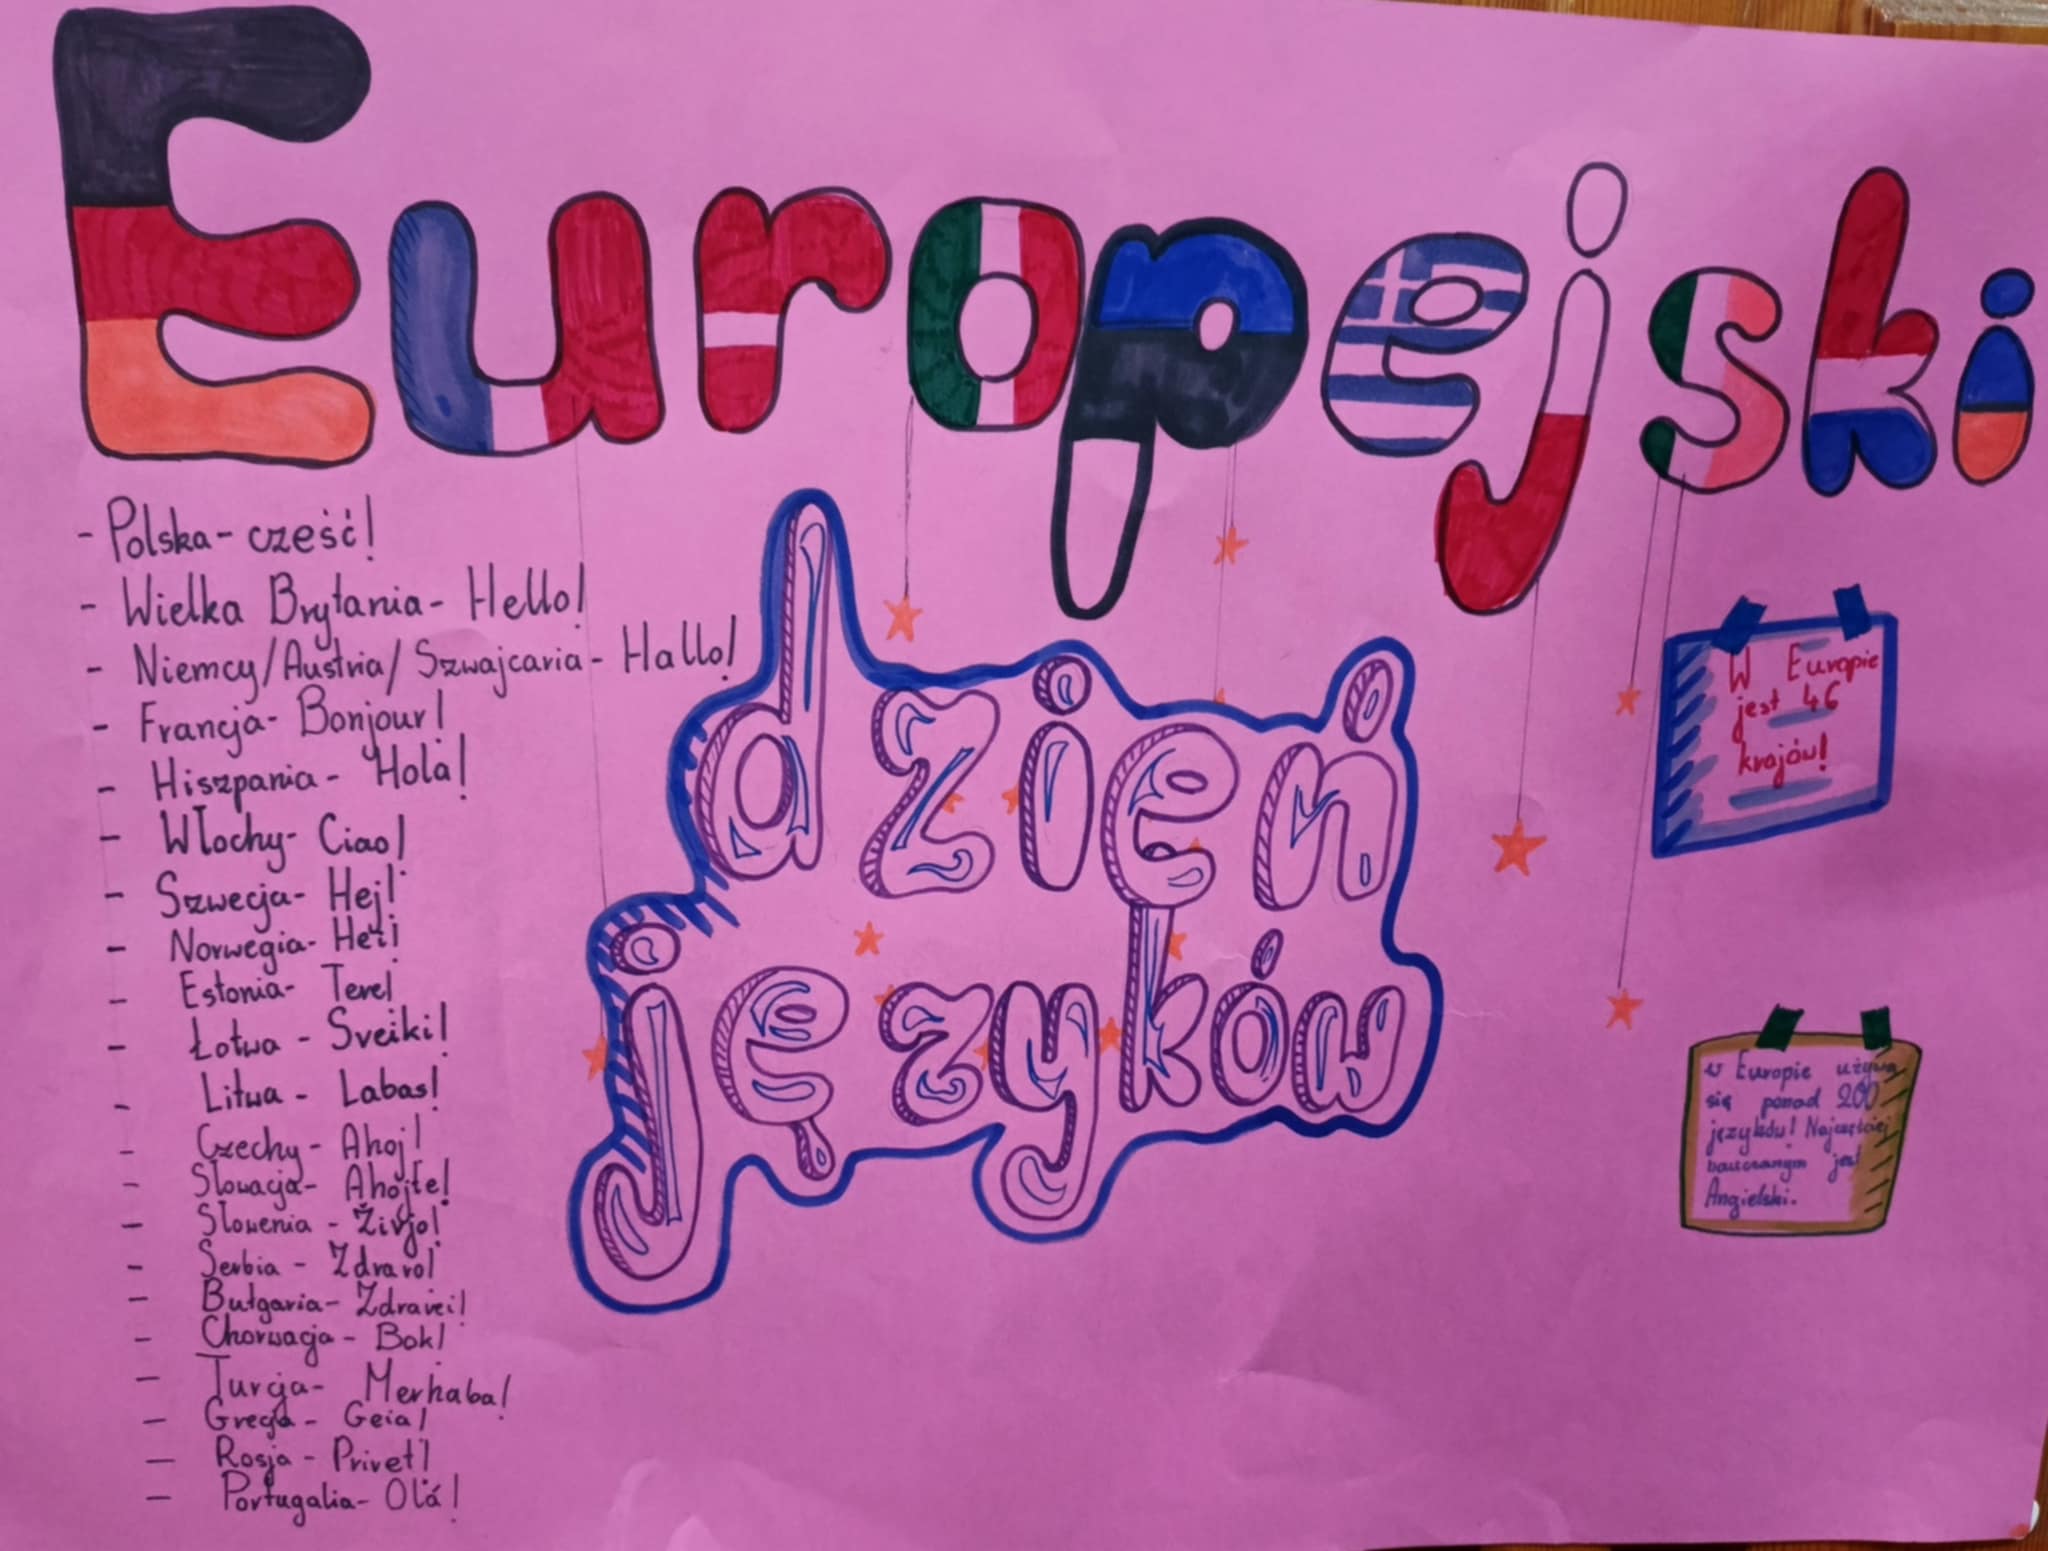 Europejski
dzień
języków
- Polska - cześć!
- Wielka Brytania - Hello!
- Niemcy/Austria/Szwajcaria - Hallo!
- Francja - Bonjour!
- Hiszpania - Hola!
- Włochy - Ciao!
- Szwecja - Hej!
- Norwegia - Hei!
- Estonia - Tere!
- Łotwa - Sveiki!
- Litwa - Labas!
- Czechy - Ahoj!
- Słowacja - Ahojte!
- Słowenia - Živjo!
- Serbia - Zdravo!
- Bułgaria - Zdravei!
- Chorwacja - Bok!
- Turcja - Merhaba!
- Grecja - Geia!
- Rosja - Privet!
- Portugalia - Olá!
W Europie
jest 46
krajów!
w Europie używa
się ponad 200
języków! Najczęściej
nauczanym jest
Angielski.